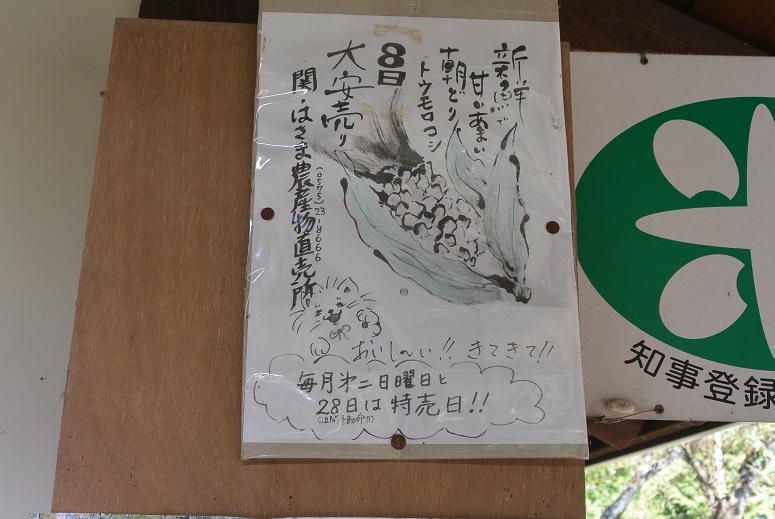 新鮮で
甘いあまい
朝どり
トウモロコシ
8日
大安売り
関・はさま農産物直売所
(0575)23-8666
おいし〜い!! きてきて!!
毎月第二日曜日と
28日は特売日!!
知事登録